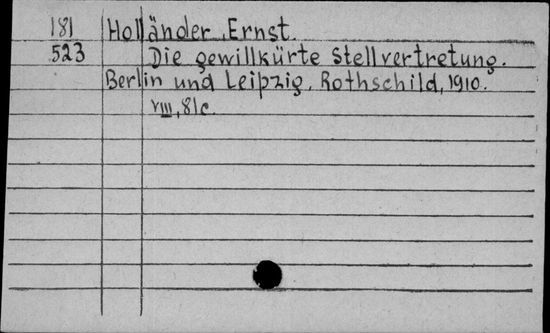 181 Holländer, Ernst.
523 Die gewillkürte Stellvertretung.
Berlin und Leipzig, Rothschild, 1910.
VIII, 81c.